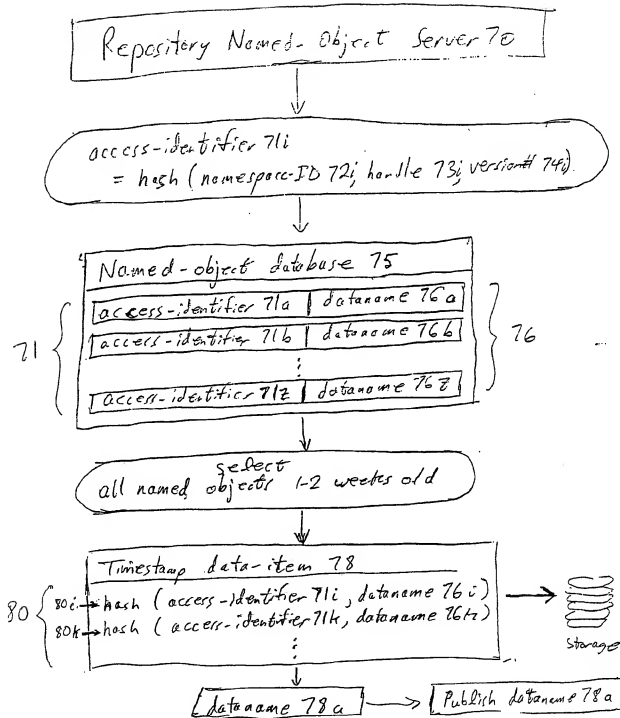 Repository Named-Object Server 70
access-identifier 71i
= hash (namespace-ID 72i, handle 73i, version# 74i)
Named-object database 75
access-identifier 71a dataname 76a
71 access-identifier 71b dataname 76b 76
access-identifier 71z dataname 76z
select
all named objects 1-2 weeks old
Timestamp data-item 78
80 80i hash (access-identifier 71i, dataname 76i)
80k hash (access-identifier 71k, dataname 76k)
Storage
dataname 78a Publish dataname 78a